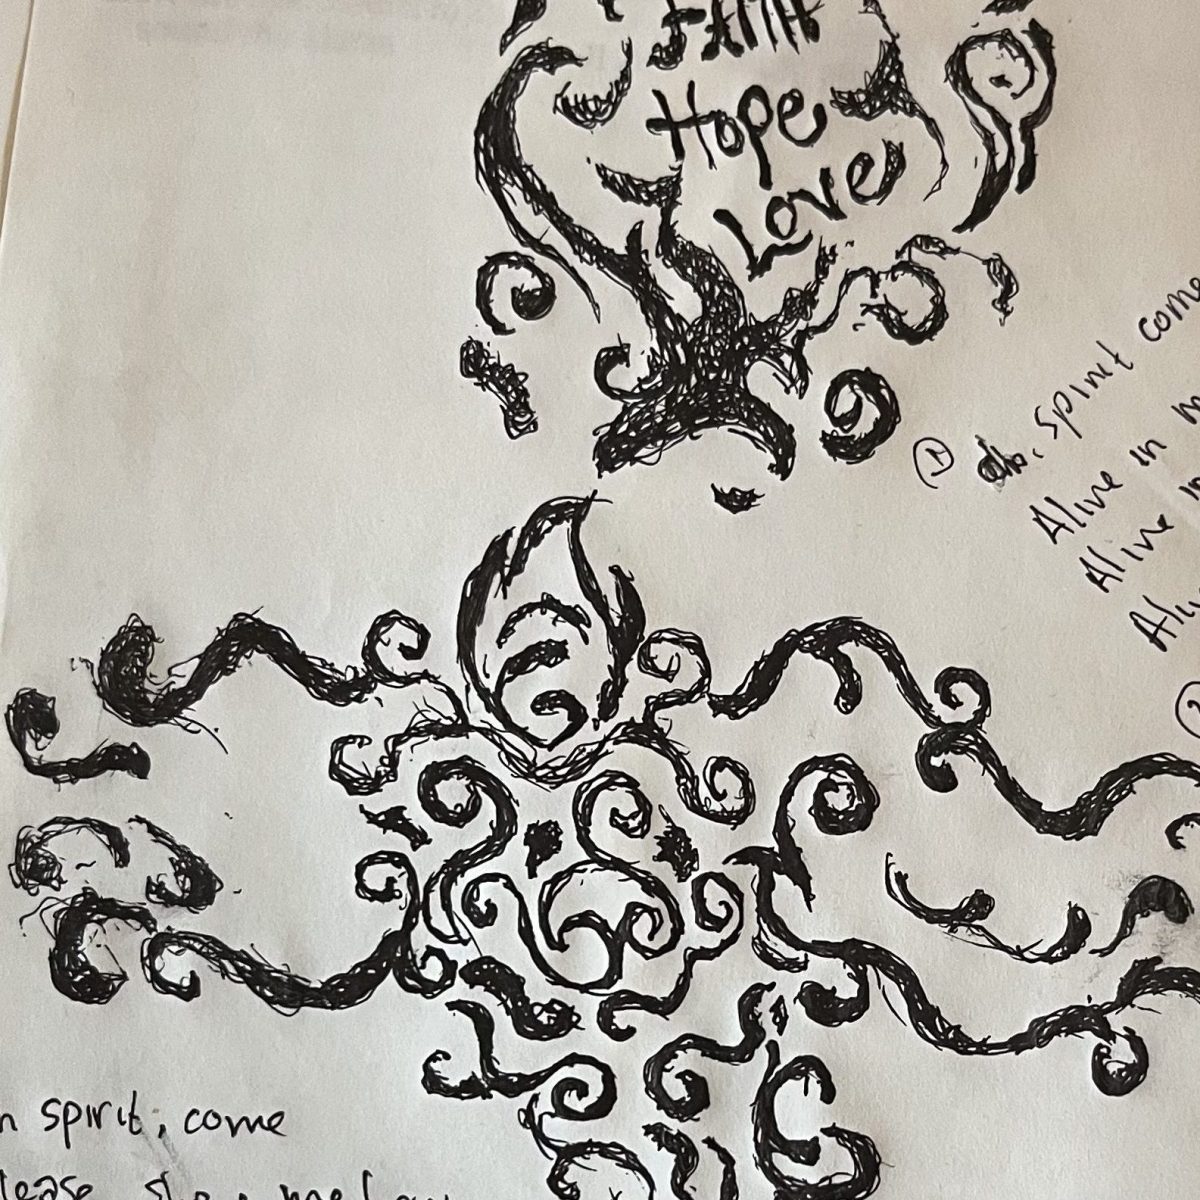 FAITH
Hope
Love
① oh. spirit come
Alive in m
Alive in
Aliv
②
n spirit, come
lease me